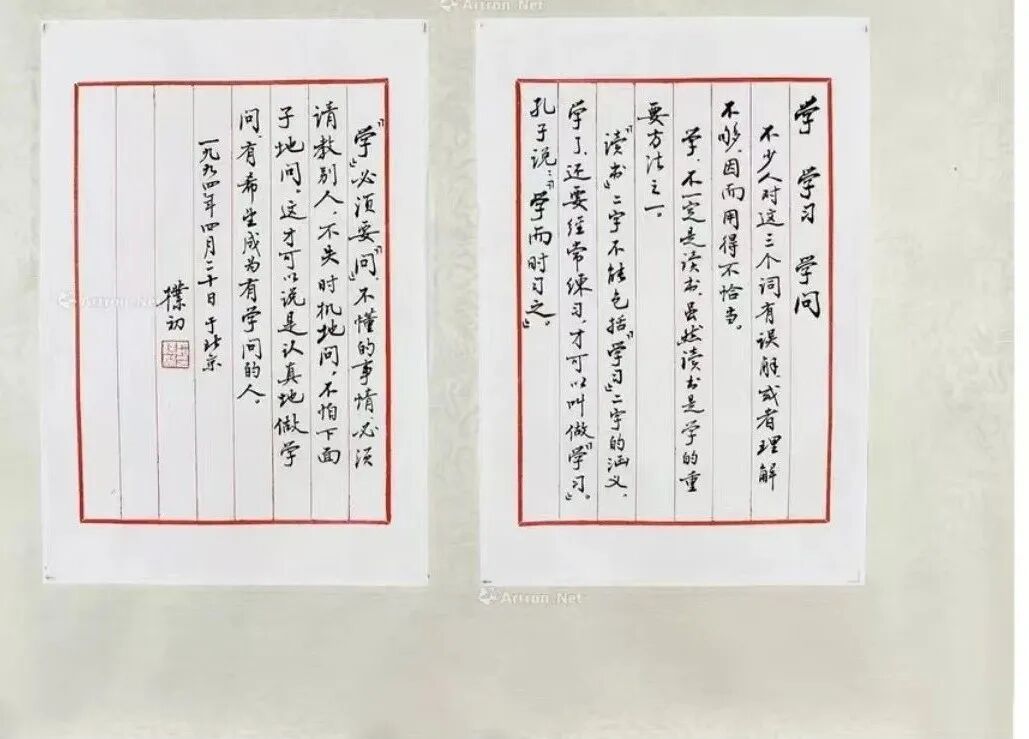 学 学习 学问
不少人对这三个词有误解或者理解
不够,因而用得不恰当。
学,不一定是读书,虽然读书是学的重
要方法之一。
“读书”二字不能包括“学习”二字的涵义,
学了,还要经常练习,才可以叫做“学习”。
孔子说:“学而时习之。”
“学”必须要“问”,不懂的事情,必须
请教别人,不失时机地问,不怕下面
子地问。这才可以说是认真地做学
问,有希望成为有学问的人。
一九九四年四月二十日于北京
樸初
Artron.Net
Artron.Net
Artron.Net